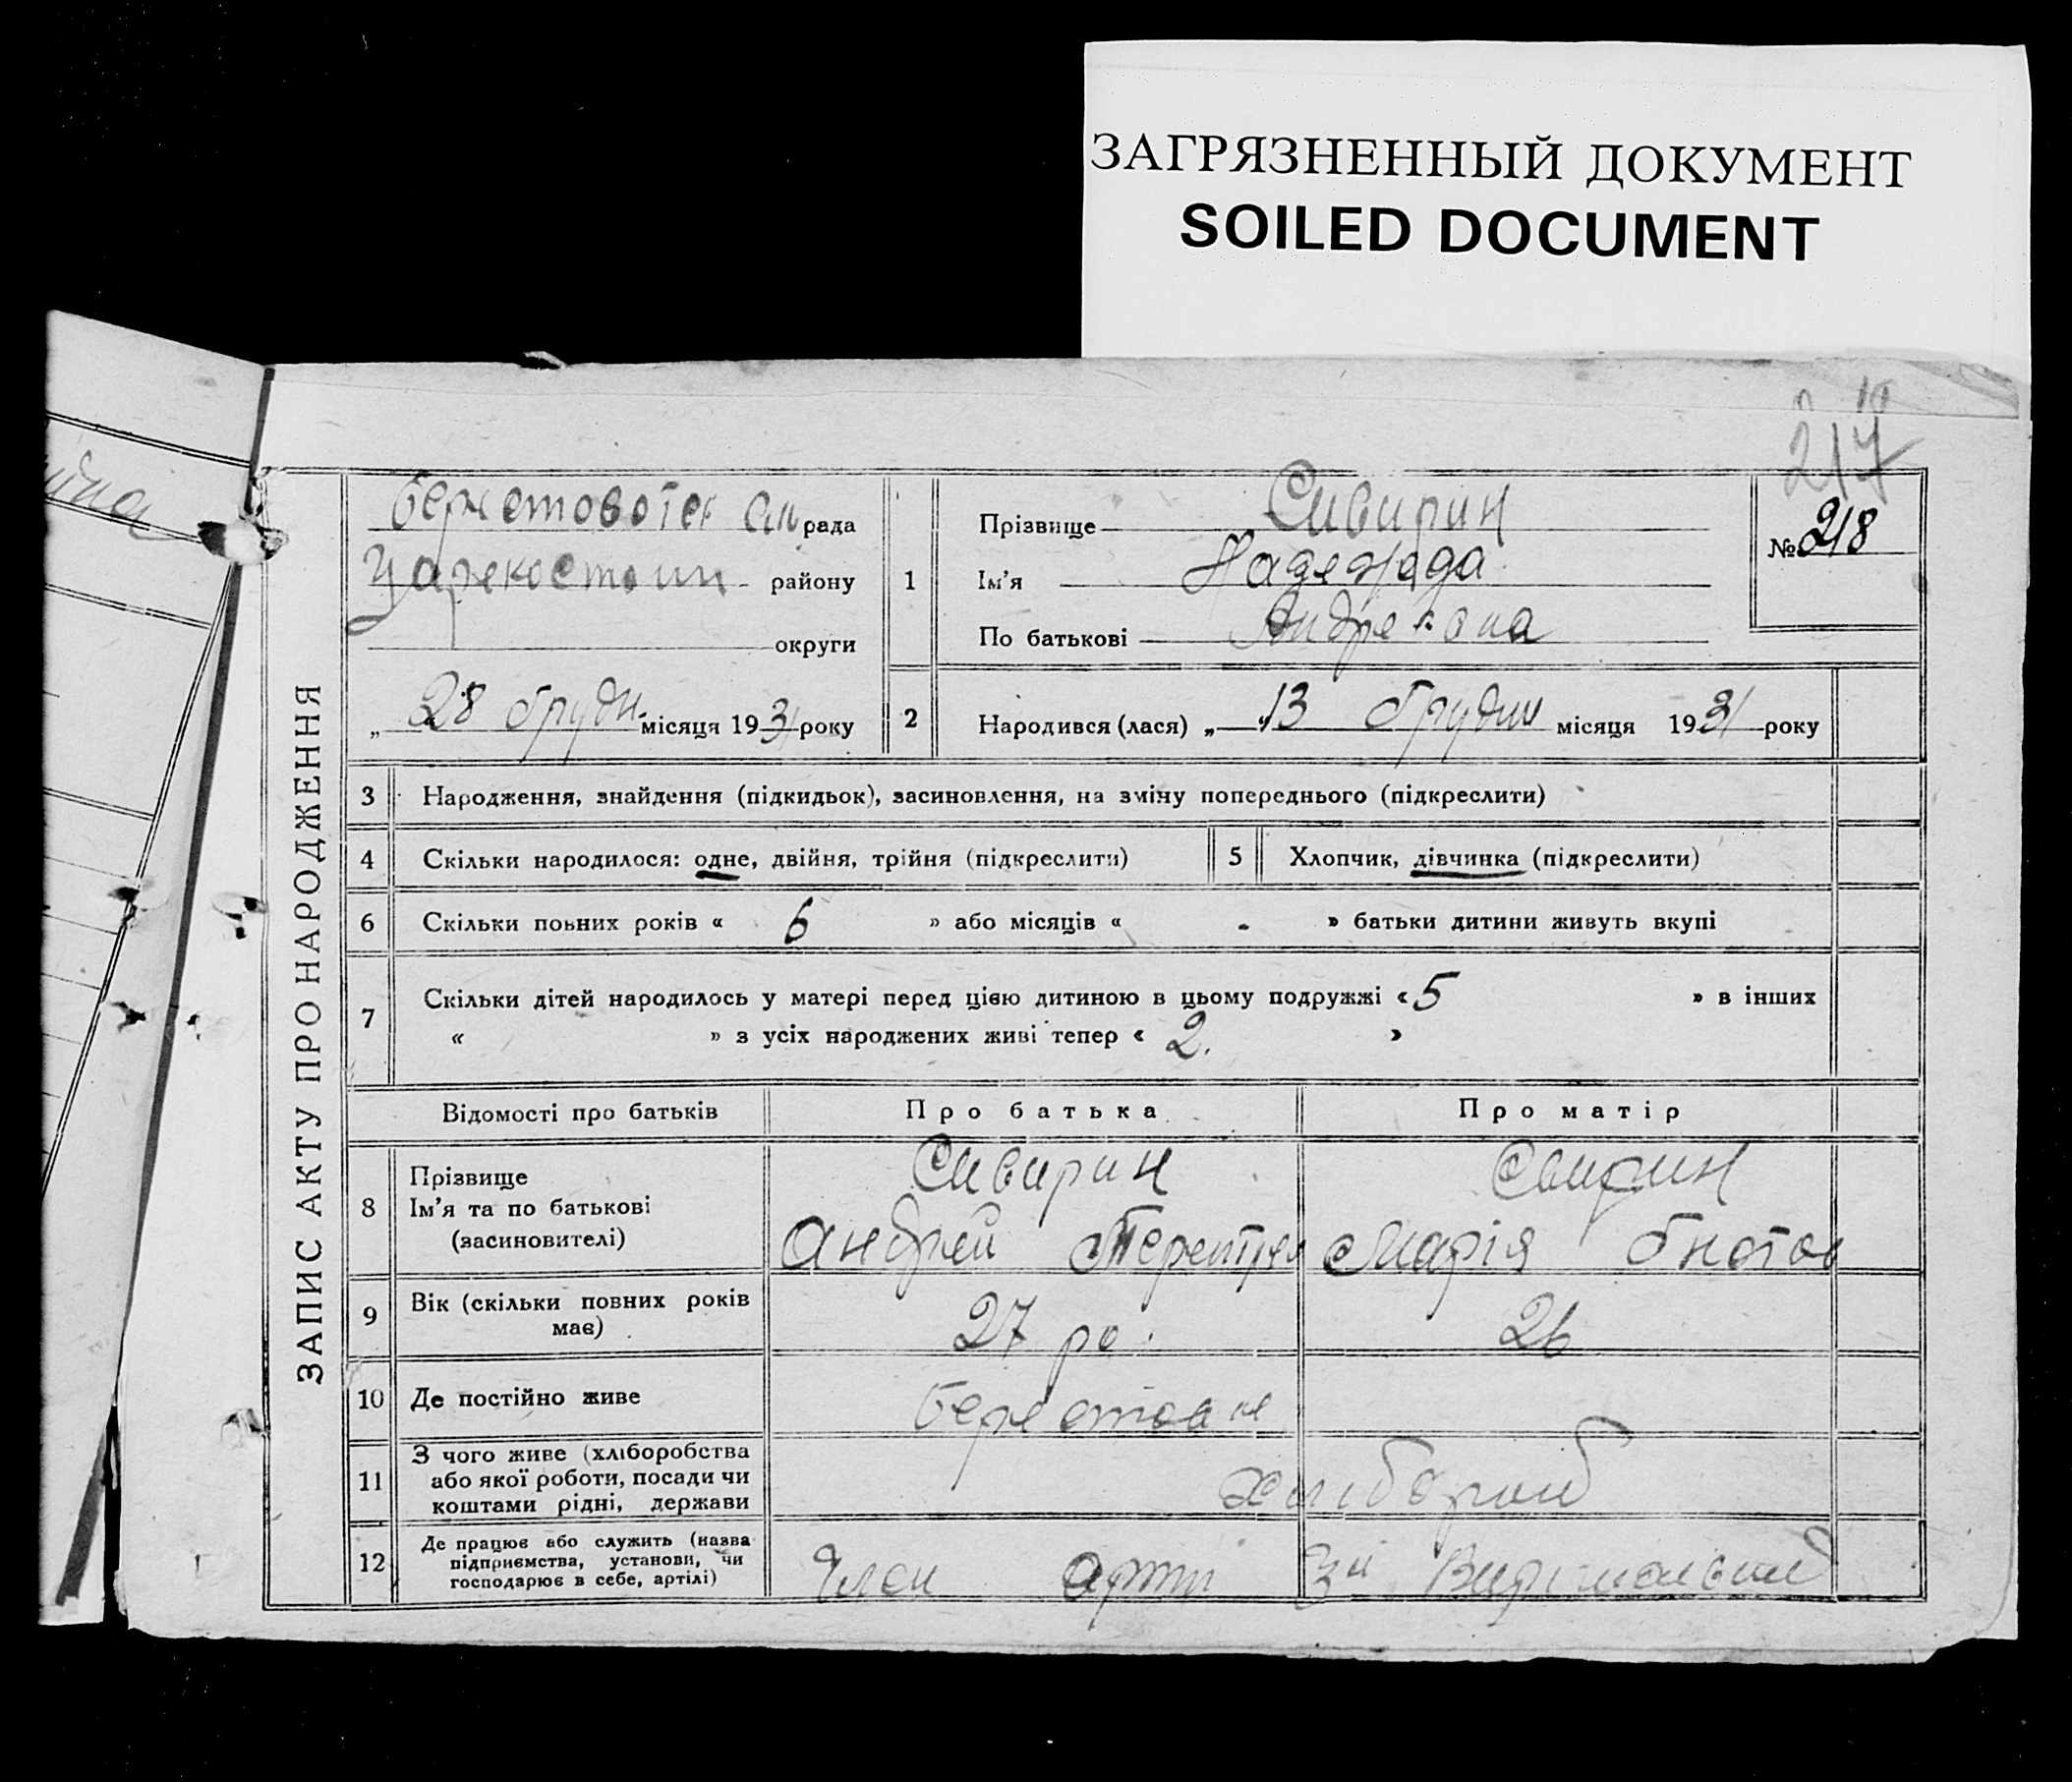 ЗАГРЯЗНЕННЫЙ ДОКУМЕНТ
SOILED DOCUMENT
217
№ 218
ЗАПИС АКТУ ПРО НАРОДЖЕННЯ
рада
району
округи
„ 28 грудн. місяця 1931 року
1
Прізвище Сивирин
Ім'я Надежда
По батькові
2 Народився (лася) „ 13 грудня місяця 1931 року
3 Народження, знайдення (підкидьок), засиновлення, на зміну попереднього (підкреслити)
4 Скільки народилося: одне, двійня, трійня (підкреслити)
5 Хлопчик, дівчинка (підкреслити)
6 Скільки повних років « 6 » або місяців « - » батьки дитини живуть вкупі
7 Скільки дітей народилось у матері перед цією дитиною в цьому подружжі « 5 » в інших
« » з усіх народжених живі тепер « 2. »
Відомості про батьків Про батька Про матір
8 Прізвище
Ім'я та по батькові
(засиновителі)
Сивирин
Андрей
Свирин
Марія
9 Вік (скільки повних років
має)
27 ро. 26
10 Де постійно живе
11 З чого живе (хліборобства
або якої роботи, посади чи
коштами рідні, держави
хлібороб
12 Де працює або служить (назва
підприємства, установи, чи
господарює в себе, артілі)
Член арті